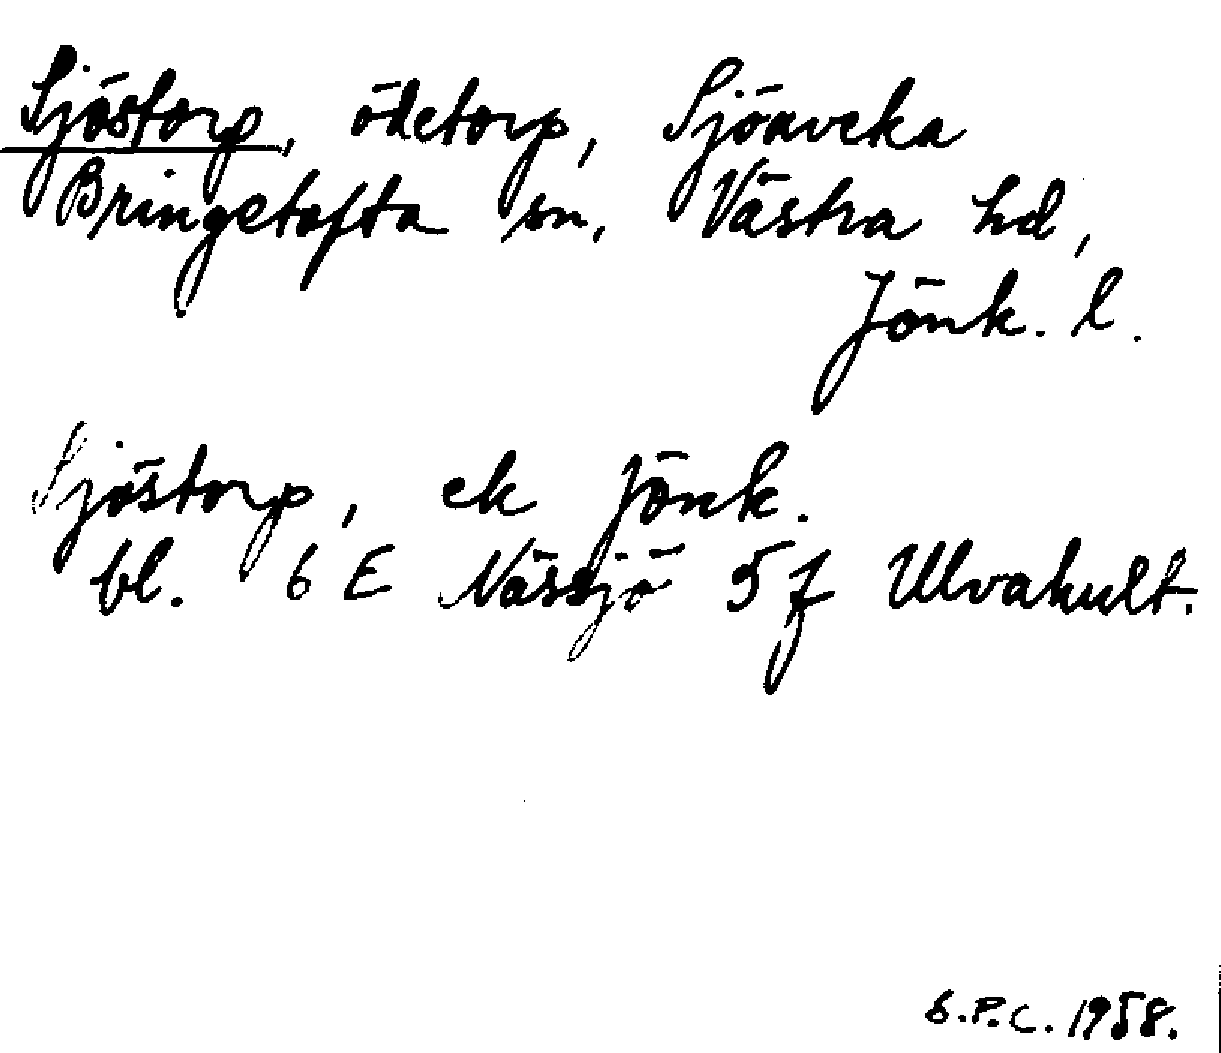 Sjöstorp, ödetorp, Sjöaveka
Bringetofta sn, Västra hd,
Jönk. l.
Sjöstorp, ek Jönk.
bl. 6 E Nässjö 5 f Ulvahult.
S.P.C. 1958.